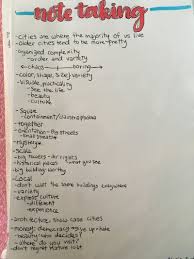 note taking
-cities are where the majority of us live
-older cities tend to be more pretty
-organized complexity
-order and variety
chaos boring
-color, shape, size, variety
-bustling, physically
-See the life
-beauty
-culture
-Square
-containment/claustrophobia
-together
-orientation-Big streets
small streets
-mysterious
-scale
-big towers-
-historical places not you see
-big building worthy
-Local
-don't want the same buildings everywhere
-variety
-express culture
-different
-experience
-architecture, show case cities
-honest, democracy up, hate
-beauty-who decides?
-where do you visit?
-don't regret nature lost